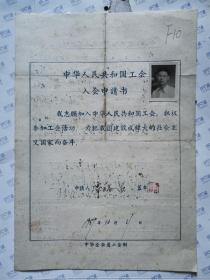 F10
中华人民共和国工会
入会申請书
我志願加入中华人民共和国工会，积极
参加工会活动，为把我国建設成伟大的社会主
义国家而奋斗。
申請人
盖章
中华全国总工会制